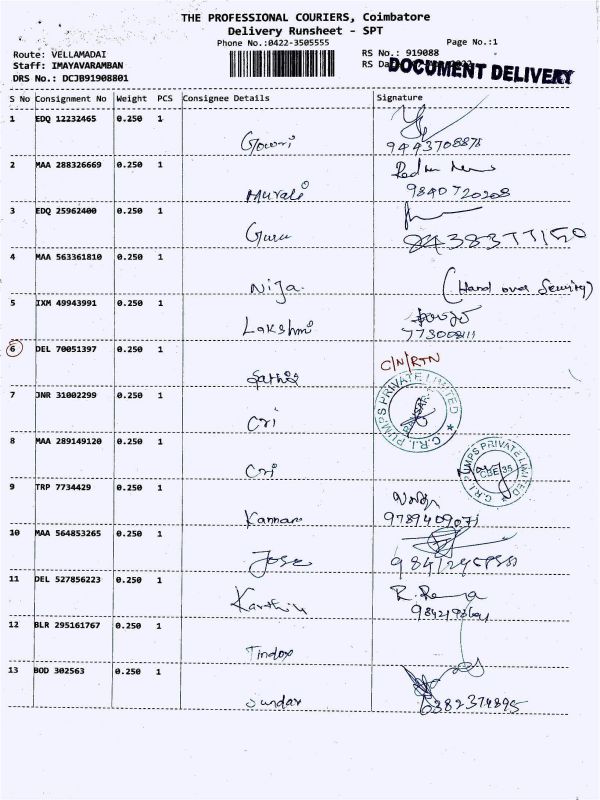 THE PROFESSIONAL COURIERS, Coimbatore
Delivery Runsheet - SPT
Phone No.:0422-3505555 Page No.:1
Route: VELLAMADAI RS No.: 919088
Staff: IMAYAVARAMBAN RS Da
DOCUMENT DELIVERY
DRS No.: DCJB91908801
S No Consignment No Weight PCS Consignee Details Signature
1 EDQ 12232465 0.250 1
Gowri 9443708878
2 MAA 288326669 0.250 1
Murali 9840720208
3 EDQ 25962400 0.250 1
Guru 8438377150
4 MAA 563361810 0.250 1
Nija. (Hand over Security)
5 IXM 49943991 0.250 1
Lakshmi
6 DEL 70051397 0.250 1
C/N/RTN
7 JNR 31002299 0.250 1
C.R.I. PUMPS PRIVATE LIMITED
Cri
8 MAA 289149120 0.250 1
Cri
C.R.I. PUMPS PRIVATE LIMITED
CBE-35
9 TRP 7734429 0.250 1
Kannan 9789409071
10 MAA 564853265 0.250 1
Jose
11 DEL 527856223 0.250 1
Karthik R. Rema
12 BLR 295161767 0.250 1
Tindox
13 BOD 302563 0.250 1
Sundar 6382374895